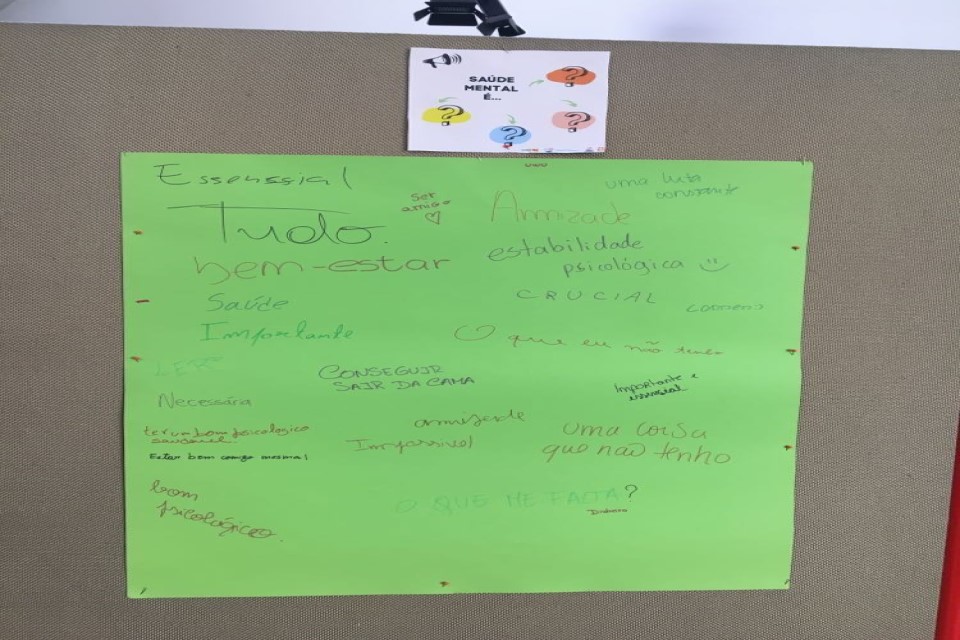 SAÚDE
MENTAL
É...
Essenssial
Tudo.
Ser
amigo
Amizade
uma luta
constante
bem-estar
estabilidade
psicológica
Saúde
CRUCIAL
Importante
O que eu não tenho
LER
CONSEGUIR
SAIR DA CAMA
Importante e
Necessária
amizade
ter um bom psicologico
saudável.
Impossivel
uma coisa
que não tenho
Estar bem comigo mesma!
bom
psicológico.
O QUE ME FALTA?
Dinheiro